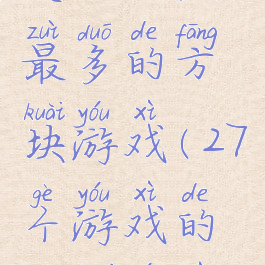 zuì duō de fāng
最多的方
kuài yóu xì
块游戏(27
gè yóu xì de
个游戏的